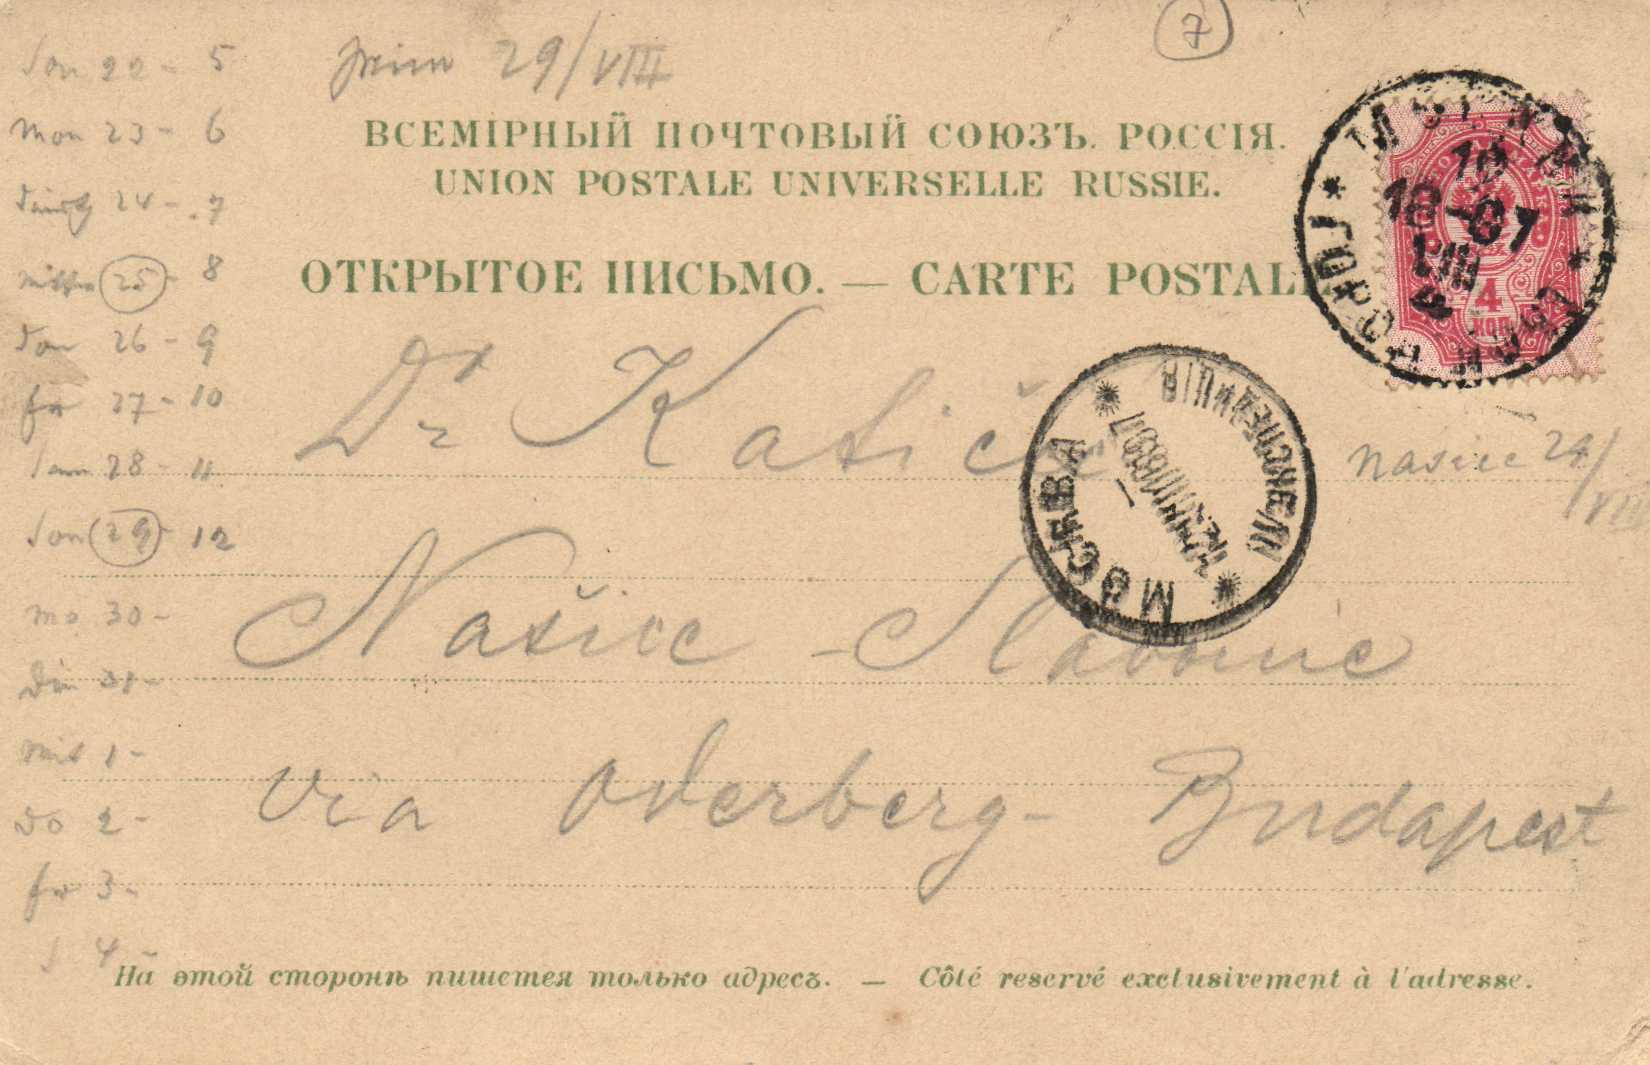 7
29/VIII
ВСЕМІРНЫЙ ПОЧТОВЫЙ СОЮЗЪ. РОССІЯ.
UNION POSTALE UNIVERSELLE RUSSIE.
ОТКРЫТОЕ ПИСЬМО. — CARTE POSTALE
4
КОП
МОСКВА
ЭКСПЕДИЦІЯ
Son 22 - 5
Mon 23 - 6
24 - 7
25 - 8
Don 26 - 9
fr 27 - 10
Sam 28 - 11
Son 29 - 12
Mo 30 -
Din 31 -
Mit 1 -
Do 2 -
fr 3 -
S 4 -
Dr
Nasice 24/VIII
Našice - Slavonie
via Oderberg - Budapest
На этой сторонѣ пишется только адресъ. — Côté reservé exclusivement à l'adresse.